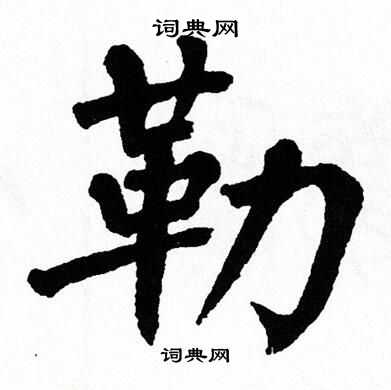 词典网
勒
词典网